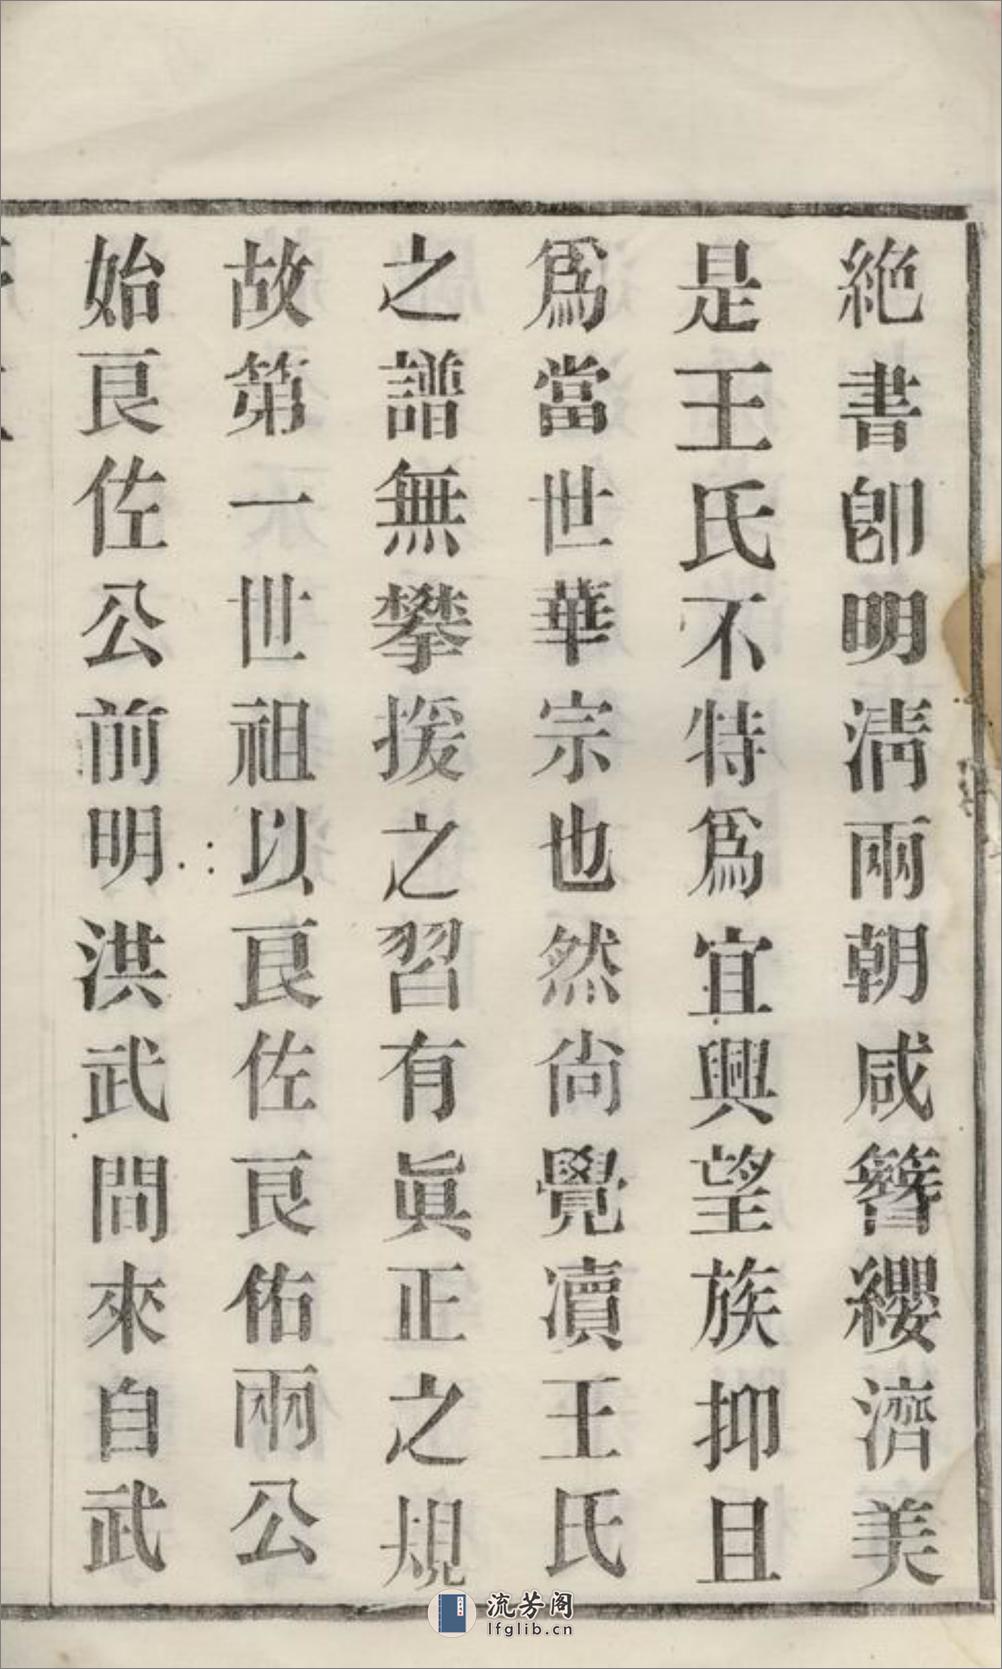 絶書卽明淸兩朝咸簪纓濟美
是王氏不特爲宜興望族抑且
爲當世華宗也然尙覺瀆王氏
之譜無攀援之習有眞正之規
故第一世祖以良佐良佑兩公
始良佐公前明洪武間來自武
流芳阁
lfglib.cn